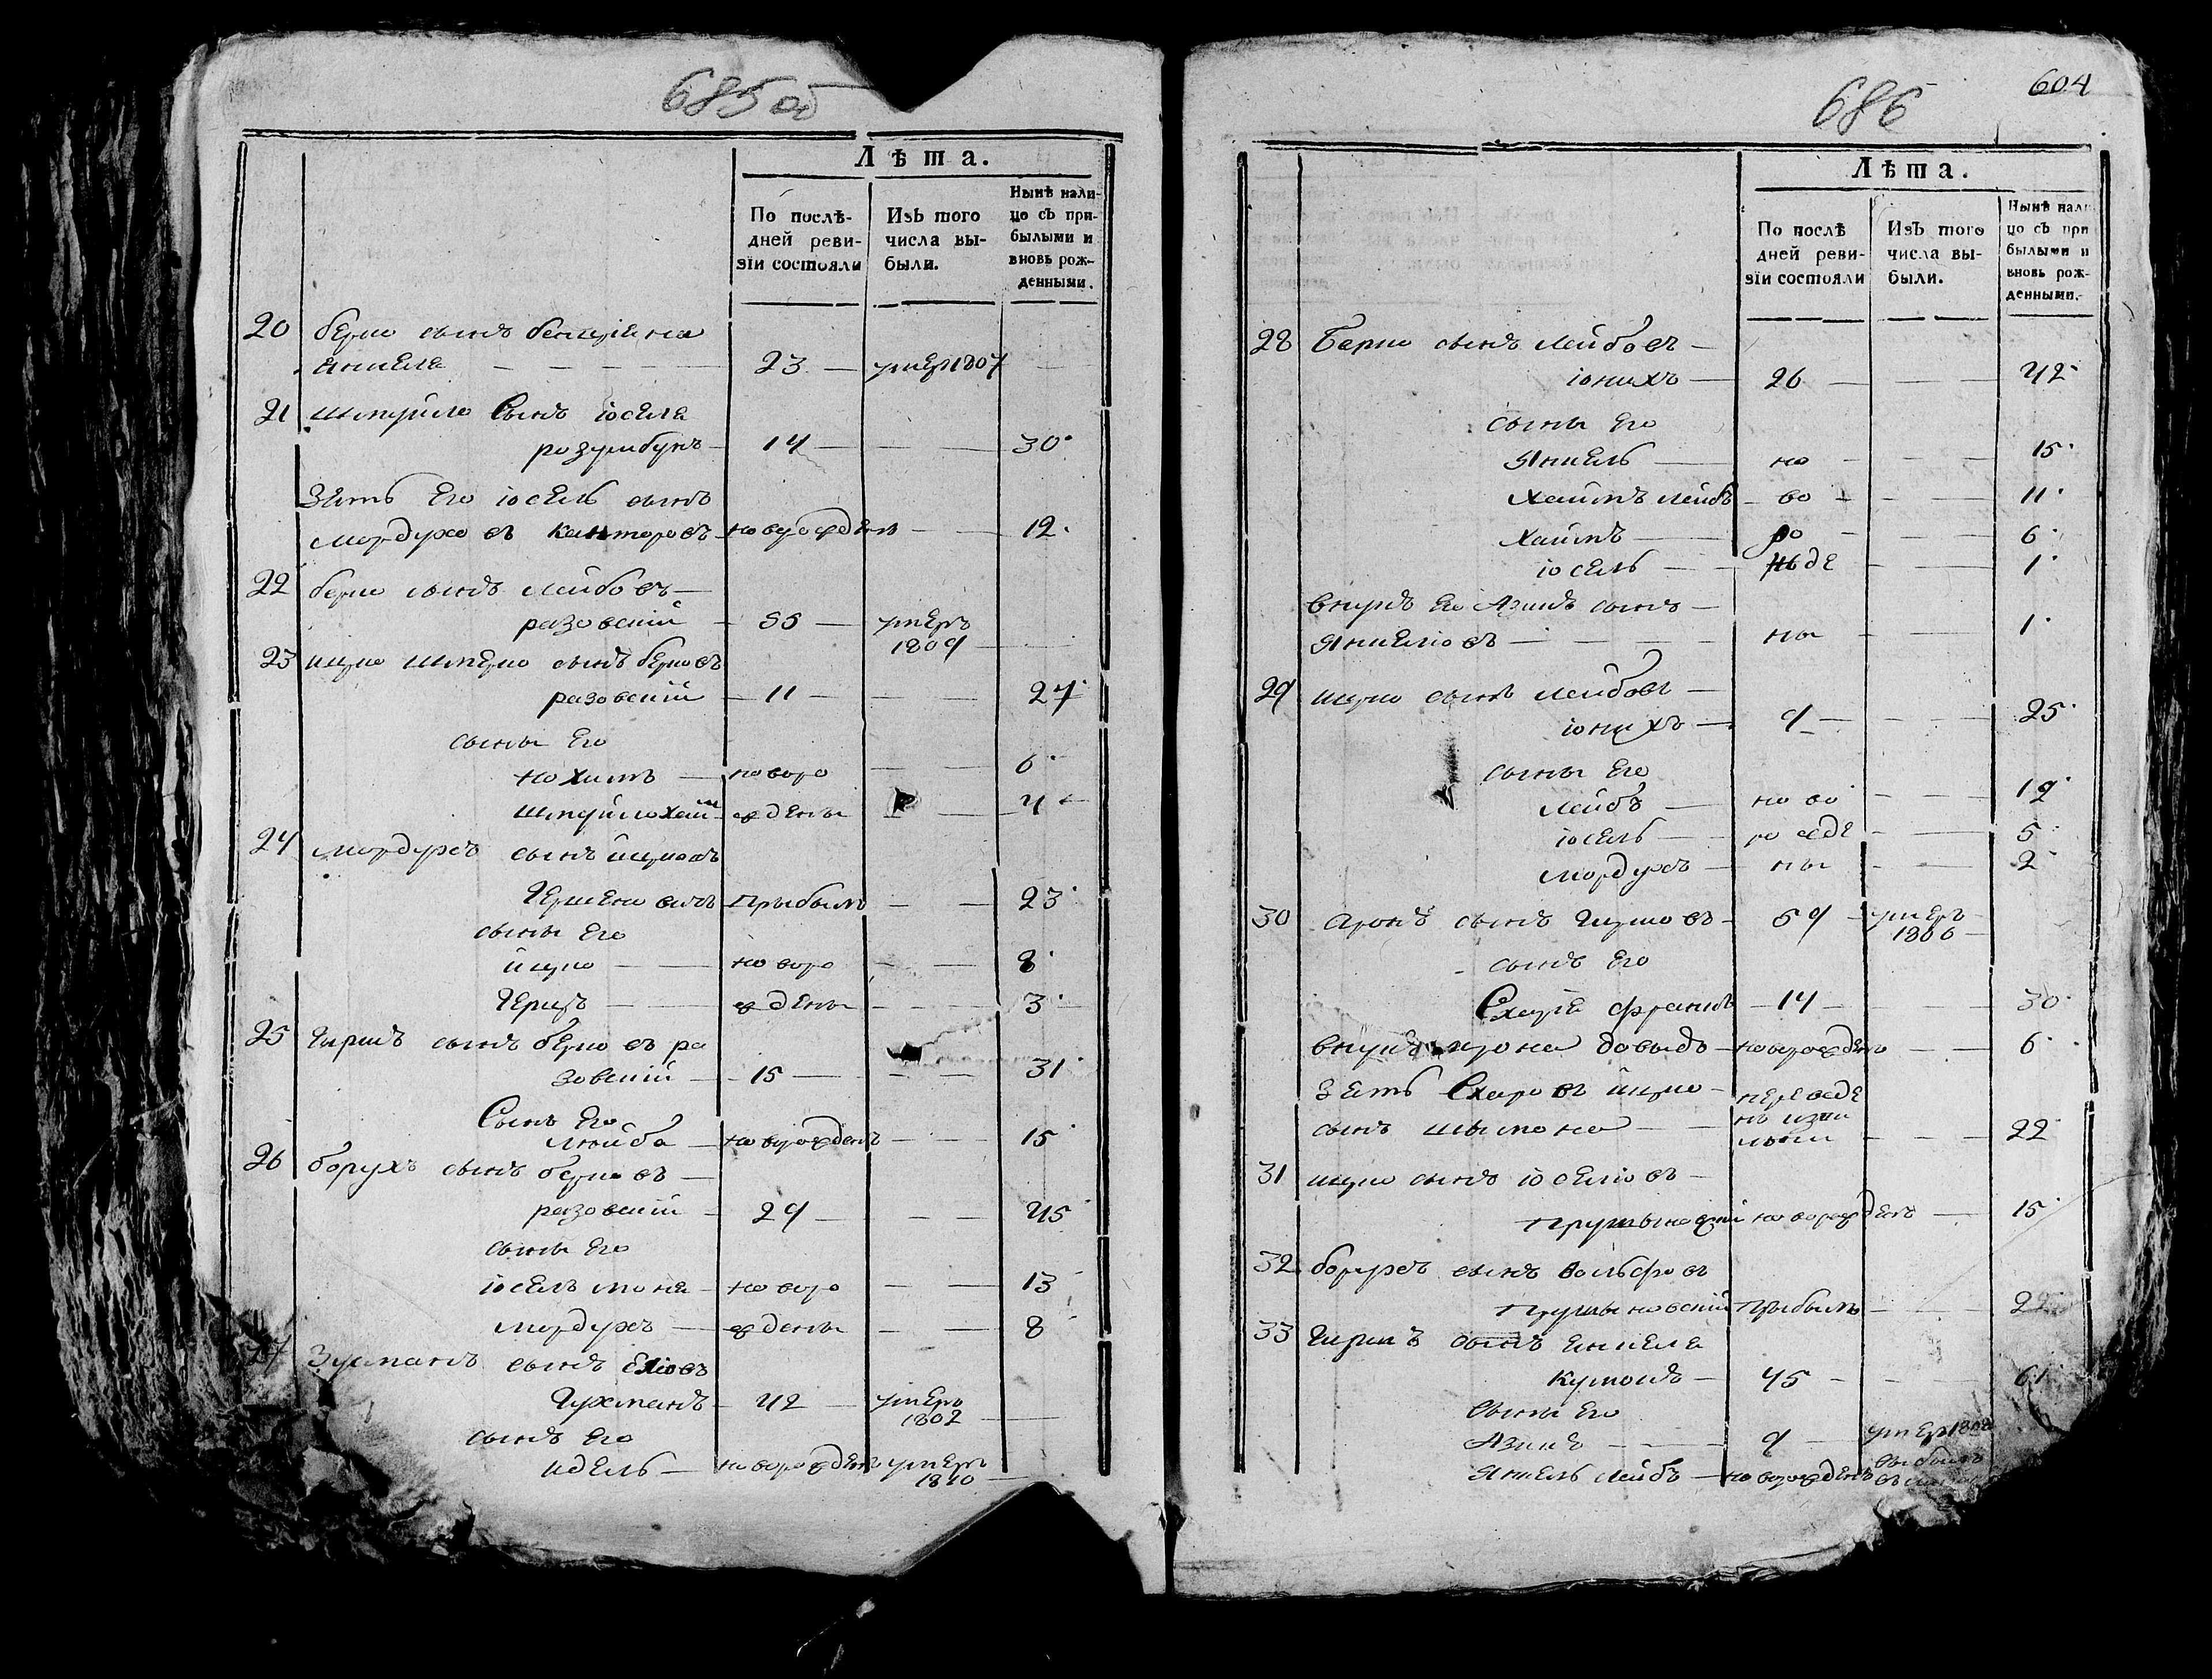 685 об
Лѣта.
По послѣдней ревизіи состояли
Изъ того числа выбыли.
Нынѣ налицо съ прибылыми и вновь рожденными.
20 берко сынъ бенцiена
янкеля — 23 — умер 1807 —
21 шмуйло Сынъ іоселя
розумбукъ — 14 — — 30
Зять Его іосель сынъ
мордухо въ канторовъ — новорожденъ — 12
22 берко сынъ лейбовъ —
разовскій — 55 — умеръ
1809 —
23 ицко шмерко сынъ берковъ
разовскій — 11 — — 27
сыны Его
нохимъ — новоро — — 6
шмуйло хаим — жденны — — 4
24 мордухъ сынъ ицковъ
Гершеновичъ — прибылъ — — 23
сыны Его
ицко — новоро — — 8
Герцъ — жденны — — 3
25 Гиршъ сынъ берко въ ра
зовскій — 15 — — — 31
Сынъ Его
лейба — новорожденъ — — 15
26 борухъ сынъ берковъ —
разовскій — 29 — — — 45
сыны Его
іосель мона — новоро — — 13
мордухъ — жденны — — 8
27 Зусманъ сынъ Еліовъ
Гухманъ — 42 — умеръ
1802 —
сынъ Его
идель — новорожденъ умеръ
1810 —
604
686
Лѣта.
По послѣдней ревизіи состояли
Изъ того числа выбыли.
Нынѣ налицо съ прибылыми и вновь рожденными.
28 Берко сынъ лейбовъ —
іонихъ — 26 — — — 42
сыны Его
Янкель — но — — — 15
Хаимъ лейбъ — во — — — 11
Хаимъ — ро — — — 6
іосель — жде — — — 1
внукъ Его Азикъ сынъ —
Янкеліовъ — — — ны — — 1
29 ицко сынъ лейбовъ —
іонихъ — 9 — — — 25
сыны Его
лейбъ — ново — — — 12
іосель — рожде — — 5
мордухъ — ны — — 2
30 аронъ сынъ Гиршовъ — 59 — умеръ
1806 —
сынъ Его
Схарiя франкъ — 14 — — 30
внукъ арона довыдъ — новорожденъ — — 6
Зять Схаровъ ицко — переведе
сынъ шымона — нъ изъ
— — — 22
31 ицко сынъ іоселіовъ —
пружыновскій новорожденъ — 15
32 борухъ сынъ вольфовъ
пружыновскій прибылъ — — 22
33 Гиршъ сынъ янкеля
— 45 — — — 61
Сыны Его
Азикъ — — — 9 — умер 1808
Янкель лейбъ — новорожденъ выбылъ